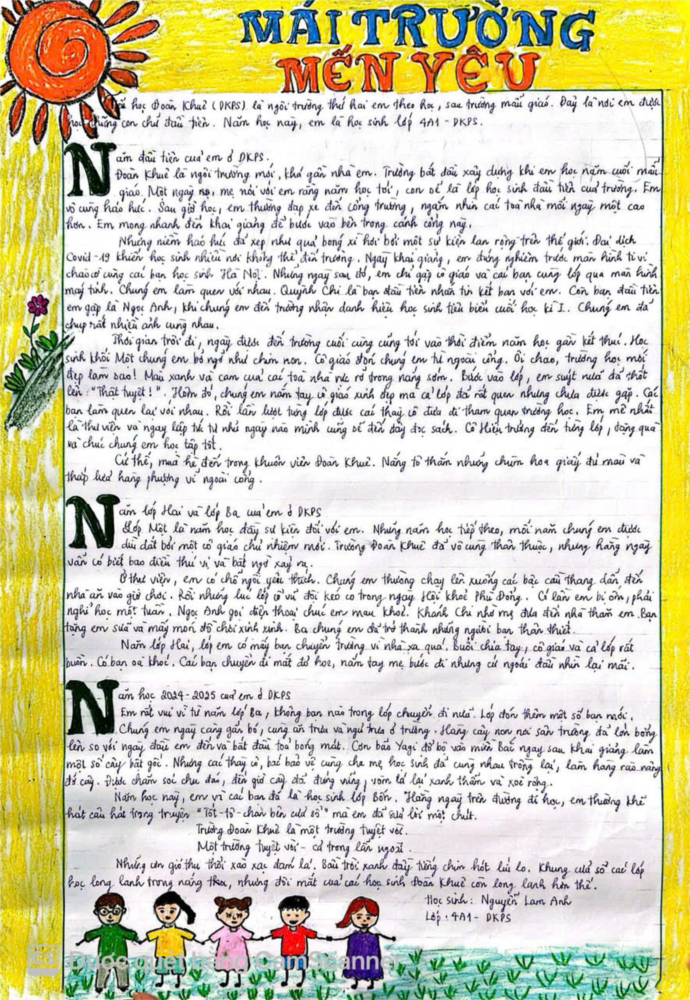 MÁI TRƯỜNG
MẾN YÊU
học Đoàn Khuê (DKPS) là ngôi trường thứ hai em theo học, sau trường mẫu giáo. Đây là nơi em được
học những con chữ đầu tiên. Năm học này, em là học sinh lớp 4A1 - DKPS.
Năm đầu tiên của em ở DKPS.
Đoàn Khuê là ngôi trường mới, thứ gần nhà em. Trường bắt đầu xây dựng khi em học năm cuối mẫu
giáo. Một ngày nọ, mẹ nói với em rằng năm học tới, con sẽ là lớp học sinh đầu tiên của trường. Em
vô cùng háo hức. Sau giờ học, em thường đạp xe đến cổng trường, ngắm nhìn các toà nhà mỗi ngày một cao
hơn. Em mong nhanh đến khai giảng để bước vào bên trong cánh cổng này.
Nhưng niềm háo hức đã xẹp như quả bóng xì hơi bởi một sự kiện lan rộng trên thế giới. Đại dịch
Covid-19 khiến học sinh nhiều nơi không thể đến trường. Ngày khai giảng, em đứng nghiêm trước màn hình ti vi
chào cờ cùng các bạn học sinh Hà Nội. Những ngày sau đó, em chỉ gặp cô giáo và các bạn cùng lớp qua màn hình
máy tính. Chúng em làm quen với nhau. Quỳnh Chi là bạn đầu tiên nhắn tin kết bạn với em. Còn bạn đầu tiên
em gặp là Ngọc Anh, khi chúng em đến trường nhận danh hiệu học sinh tiêu biểu cuối học kì I. Chúng em đã
chụp rất nhiều ảnh cùng nhau.
Thời gian trôi đi, ngày được đến trường cuối cùng cũng tới vào thời điểm năm học gần kết thúc. Học
sinh khối Một chúng em bỡ ngỡ như chim non. Cô giáo đón chúng em từ ngoài cổng. Ôi chao, trường học mới
đẹp làm sao! Màu xanh và cam của các toà nhà rực rỡ trong nắng sớm. Bước vào lớp, em suýt nữa đã thốt
lên "Thật tuyệt!". Hôm đó, chúng em nắm tay cô giáo xinh đẹp mà cả lớp đã rất quen nhưng chưa được gặp. Các
bạn làm quen lại với nhau. Rồi lần lượt từng lớp được các thầy cô đưa đi tham quan trường học. Em mê nhất
là thư viện và ngay lập tức tự nhủ ngày nào mình cũng sẽ đến đây đọc sách. Cô Hiệu trưởng đến từng lớp, tặng quà
và chúc chúng em học tập tốt.
Cứ thế, mùa hè đến trong khuôn viên Đoàn Khuê. Nắng tô thắm những chùm hoa giấy đủ màu và
thắp lửa hàng phượng vĩ ngoài cổng.
Năm lớp Hai và lớp Ba của em ở DKPS
Lớp Một là năm học đầy sự kiện đối với em. Những năm học tiếp theo, mỗi năm chúng em được
dìu dắt bởi một cô giáo chủ nhiệm mới. Trường Đoàn Khuê đã vô cùng thân thuộc, nhưng hằng ngày
vẫn có biết bao điều thú vị và bất ngờ xảy ra.
Ở thư viện, em có chỗ ngồi yêu thích. Chúng em thường chạy lên xuống các bậc cầu thang dẫn đến
nhà ăn vào giờ chơi. Rồi những lúc lớp cổ vũ đội kéo co trong ngày Hội khoẻ Phù Đổng. Có lần em bị ốm, phải
nghỉ học một tuần. Ngọc Anh gọi điện thoại chúc em mau khoẻ. Khánh Chi nhờ mẹ đưa đến nhà thăm em. Bạn
tặng em sữa và mấy món đồ chơi xinh xinh. Ba chúng em đã trở thành những người bạn thân thiết.
Năm lớp Hai, lớp em có mấy bạn chuyển trường vì nhà xa quá. Buổi chia tay, cô giáo và cả lớp rất
buồn. Có bạn oà khóc. Các bạn chuyển đi mắt đỏ hoe, nắm tay mẹ bước đi nhưng cứ ngoái đầu nhìn lại mãi.
Năm học 2024-2025 của em ở DKPS
Em rất vui vì từ năm lớp Ba, không bạn nào trong lớp chuyển đi nữa. Lớp đón thêm một số bạn mới.
Chúng em ngày càng gắn bó, cùng ăn trưa và ngủ trưa ở trường. Hàng cây non nơi sân trường đã lớn bổng
lên so với ngày đầu em đến và bắt đầu toả bóng mát. Cơn bão Yagi đổ bộ vào miền Bắc ngay sau khai giảng làm
một số cây bật gốc. Nhưng các thầy cô, bác bảo vệ cùng cha mẹ học sinh đã cùng nhau trồng lại, làm hàng rào nâng
đỡ cây. Được chăm sóc chu đáo, đến giờ cây đã đứng vững, vòm lá lại xanh thắm và xoè rộng.
Năm học này, em và các bạn đã là học sinh lớp Bốn. Hằng ngày trên đường đi học, em thường khẽ
hát câu hát trong truyện "Tốt-tô-chan bên cửa sổ" mà em đã sửa lời một chút.
Trường Đoàn Khuê là một trường tuyệt vời.
Một trường tuyệt vời - cả trong lẫn ngoài.
Những cơn gió thu thổi xào xạc đám lá. Bầu trời xanh đầy tiếng chim hót líu lo. Khung cửa sổ các lớp
học long lanh trong nắng thu, nhưng đôi mắt của các học sinh Đoàn Khuê còn long lanh hơn thế.
Học sinh: Nguyễn Lam Anh
Lớp: 4A1 - DKPS